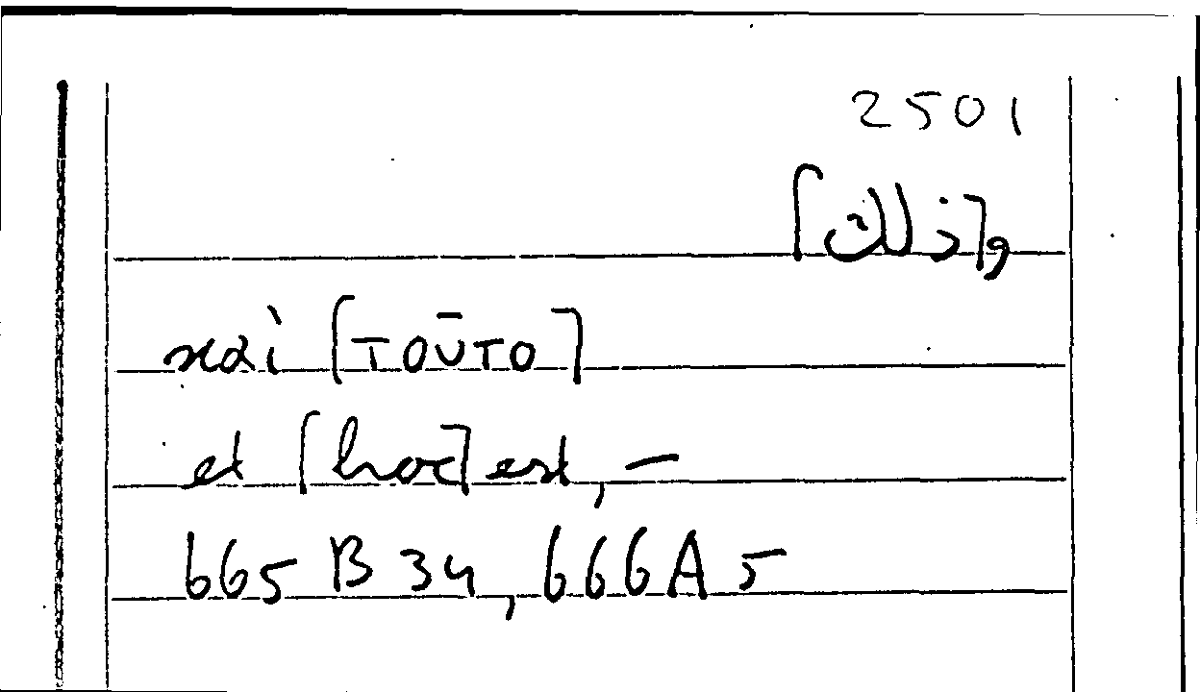 2501
و[ذلك]
καὶ [τοῦτο]
et [hoc] est, –
665 B 34, 666 A 5